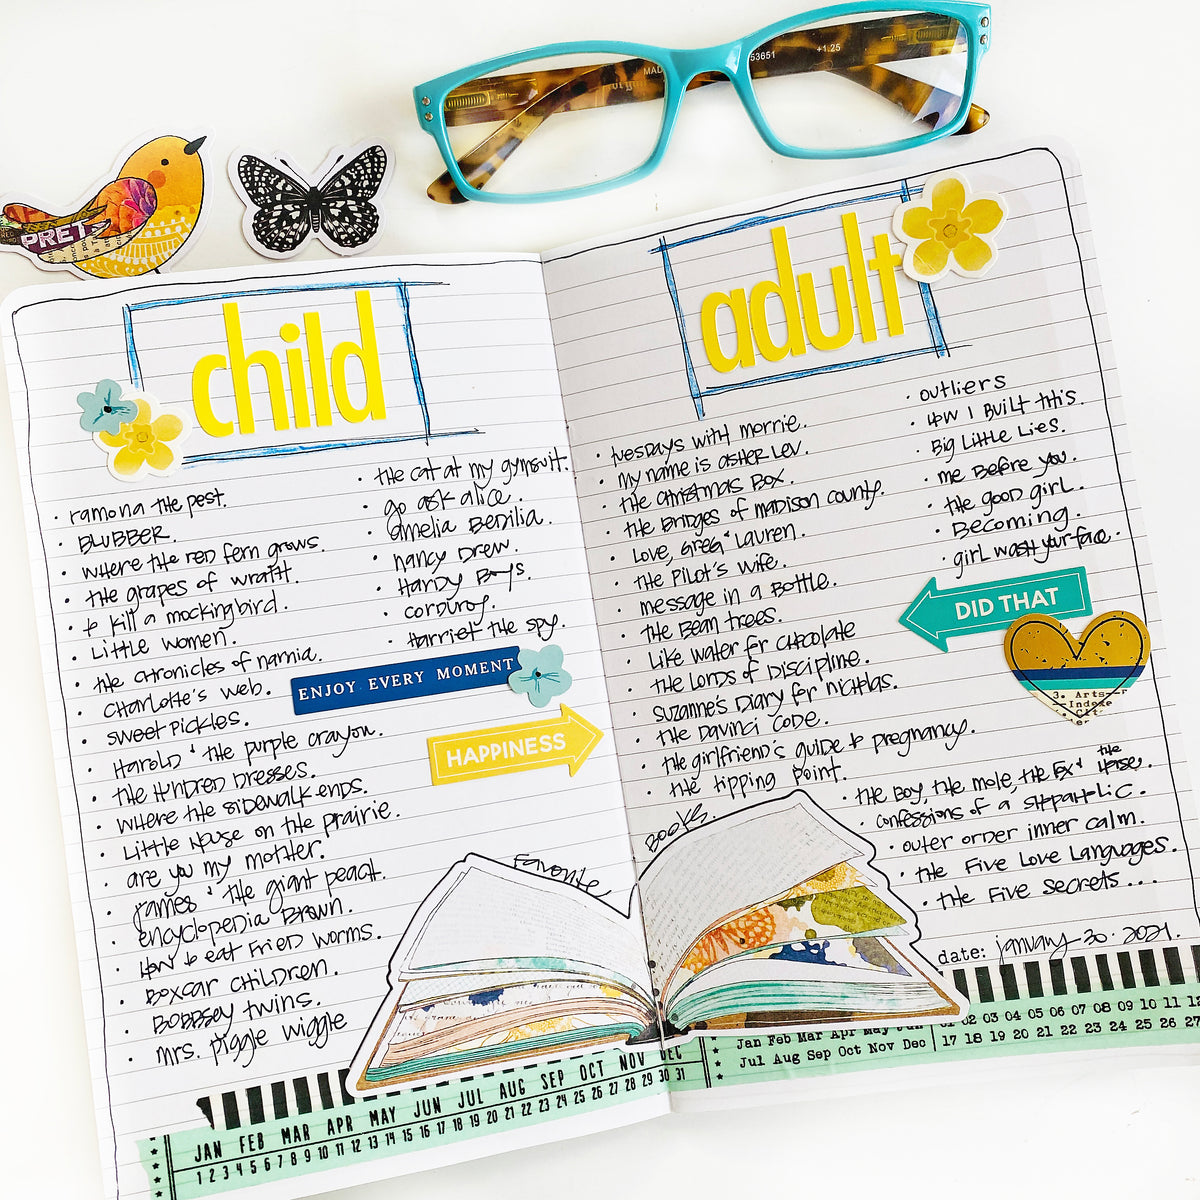 53651
+1.25
MAD
PRET
child
adult
• ramona the pest.
• BLUBBER.
• where the red fern grows.
• the grapes of wrath.
• to kill a mockingbird.
• Little women.
• the chronicles of narnia.
• Charlotte's web.
• sweet pickles.
• Harold & the purple crayon.
• the hundred dresses.
• where the sidewalk ends.
• Little house on the prairie.
• are you my mother.
• James & the giant peach.
• encyclopedia Brown.
• How to eat fried worms.
• Boxcar children.
• Bobbsey twins.
• mrs. piggle wiggle
• the cat at my gymsuit.
• go ask alice.
• amelia Bedilia.
• nancy Drew.
• Hardy Boys.
• corduroy.
• Harriet the spy.
ENJOY EVERY MOMENT
HAPPINESS
Favorite
Books.
• tuesdays with morrie.
• my name is asher Lev.
• the christmas Box.
• the Bridges of madison county.
• Love, Greg & Lauren.
• the Pilot's wife.
• message in a Bottle.
• the Bean trees.
• Like water for chocolate
• the Lords of Discipline.
• Suzanne's Diary for nicholas.
• the Davinci code.
• the girlfriend's guide to pregnancy.
• the tipping point.
• outliers
• How I Built this.
• Big Little Lies.
• me Before you.
• the good girl.
• Becoming.
• girl wash your face.
DID THAT
3. Arts
Index
• the Boy, the mole, the Fox & the Horse.
• confessions of a shopaholic.
• outer order inner calm.
• the Five Love Languages.
• the Five secrets...
date: january 30. 2021.
JAN FEB MAR APR MAY JUN JUL AUG SEP OCT NOV DEC
1 2 3 4 5 6 7 8 9 10 11 12 13 14 15 16 17 18 19 20 21 22 23 24 25 26 27 28 29 30 31
Jan Feb Mar Apr May Jun 01 02 03 04 05 06 07 08 09 10 11 12
Jul Aug Sep Oct Nov Dec 17 18 19 20 21 22 23 24 25 26 27